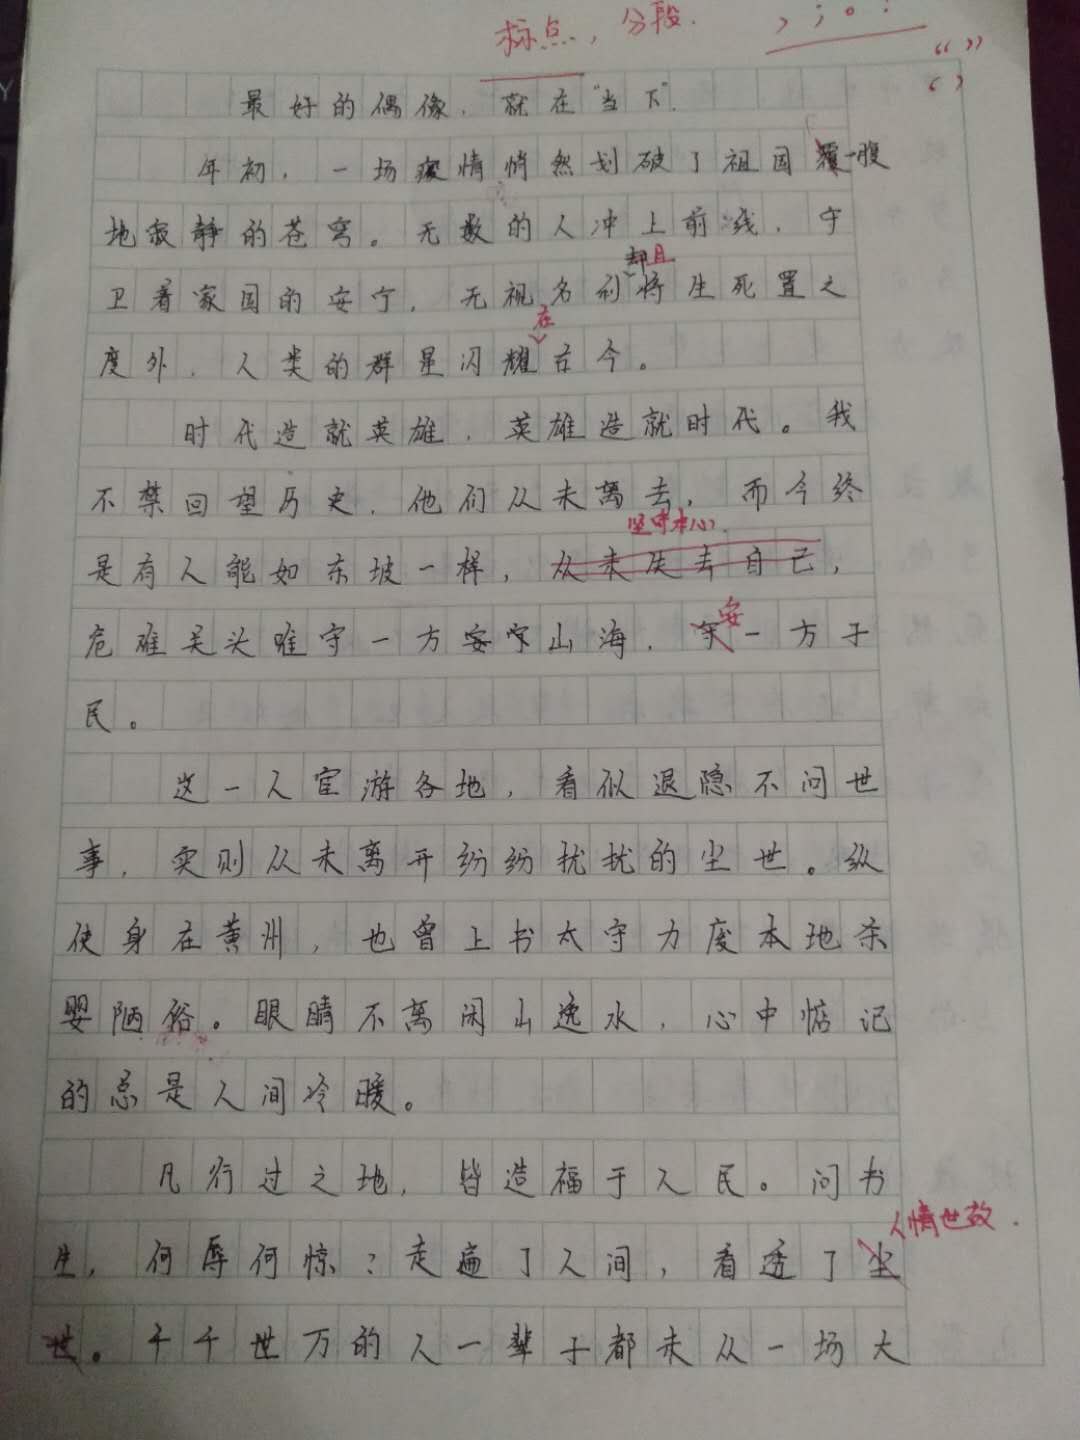 标点，分段. , ; 。 :
“ ”
‘ ’
最好的偶像，就在“当下”.
年初，一场疫情悄然划破了祖国腹
地寂静的苍穹。无数的人冲上前线，守
却且
卫着家国的安宁，无视名利将生死置之
在
度外，人类的群星闪耀古今。
时代造就英雄，英雄造就时代。我
不禁回望历史，他们从未离去，而今终
坚守本心.
是有人能如东坡一样，从未失去自己，
安
危难关头唯守一方安宁山海，一方子
民。
这一人宦游各地，看似退隐不问世
事，实则从未离开纷纷扰扰的尘世。纵
使身在黄州，也曾上书太守力废本地杀
婴陋俗。眼睛不离闲山逸水，心中惦记
的总是人间冷暖。
凡行过之地，皆造福于人民。问书
人情世故.
生，何辱何惊？走遍了人间，看透了尘
世。千千世万的人一辈子都未从一场大